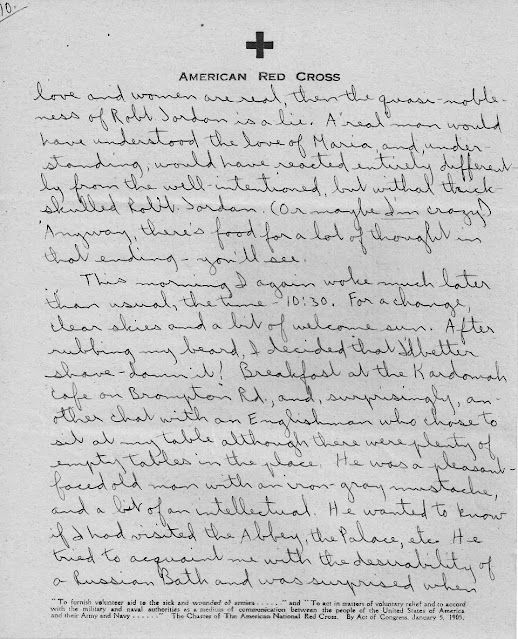 10.
AMERICAN RED CROSS
love and women are real, then the quasi-noble-
ness of Rob't. Jordan is a lie. A real man would
have understood the love of Maria, and, under-
standing, would have reacted entirely different-
ly from the well-intentioned, but withal thick-
skulled Rob't. Jordan. (Or maybe I'm crazy)
Anyway, there's food for a lot of thought in
that ending - you'll see.
This morning I again woke much later
than usual, the time - 10:30. For a change,
clear skies and a bit of welcome sun. After
rubbing my beard, I decided that I'd better
shave - damnit! Breakfast at the Kardomah
Cafe on Brompton Rd., and, surprisingly, an-
other chat with an Englishman who chose to
sit at my table although there were plenty of
empty tables in the place. He was a pleasant-
faced old man with an iron-gray mustache,
and a bit of an intellectual. He wanted to know
if I had visited the Abbey, the Palace, etc. He
tried to acquaint me with the desirability of
a Russian Bath and was surprised when
"To furnish volunteer aid to the sick and wounded of armies . . . . . ." and "To act in matters of voluntary relief and in accord
with the military and naval authorities as a medium of communication between the people of the United States of America
and their Army and Navy . . . . . ." The Charter of The American National Red Cross. By Act of Congress, January 5, 1905.